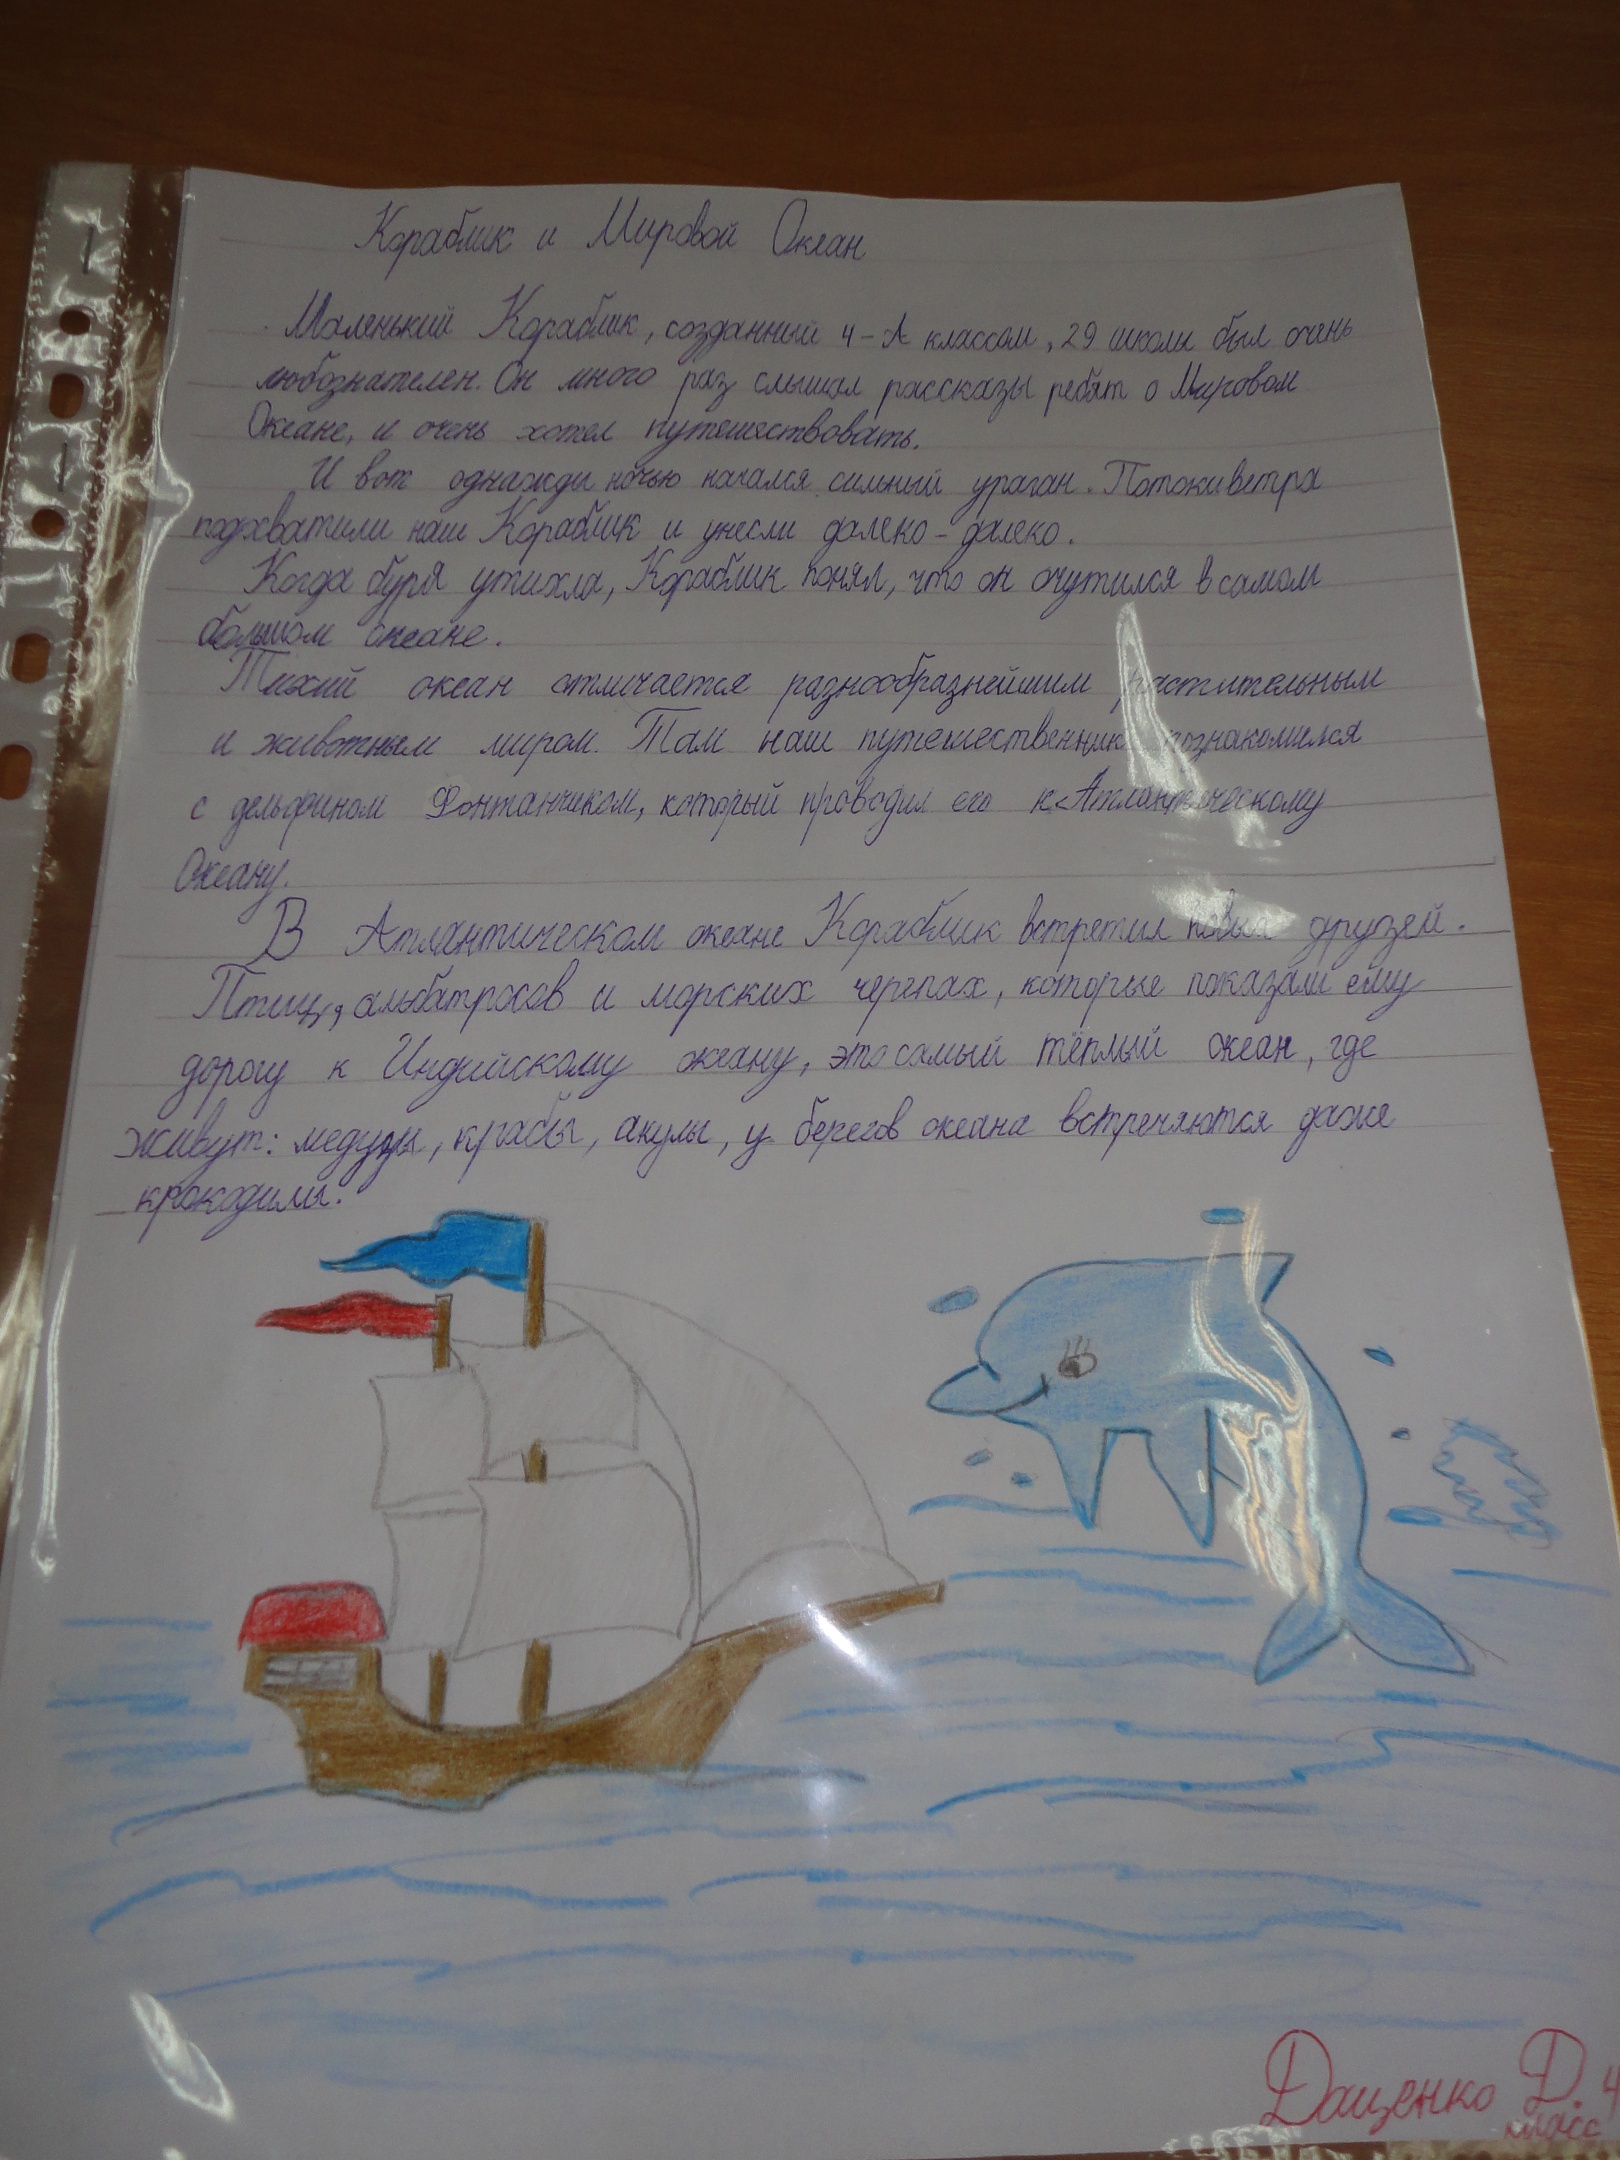 Кораблик и Мировой Океан
Маленький Кораблик, созданный 4-А классом, 29 школы был очень
любознателен. Он много раз слышал рассказы ребят о Мировом
Океане, и очень хотел путешествовать.
И вот однажды ночью начался сильный ураган. Потоки ветра
подхватили наш Кораблик и унесли далеко-далеко.
Когда буря утихла, Кораблик понял, что он очутился в самом
большом океане.
Тихий океан отличается разнообразнейшим растительным
и животным миром. Там наш путешественник познакомился
с дельфином Фонтанчиком, который проводил его к Атлантическому
Океану.
В Атлантическом океане Кораблик встретил новых друзей.
Птиц, альбатросов и морских черепах, которые показали ему
дорогу к Индийскому океану, это самый тёплый океан, где
живут: медузы, крабы, акулы, у берегов океана встречяются даже
крокодилы.
Даценко Д. 4
класс